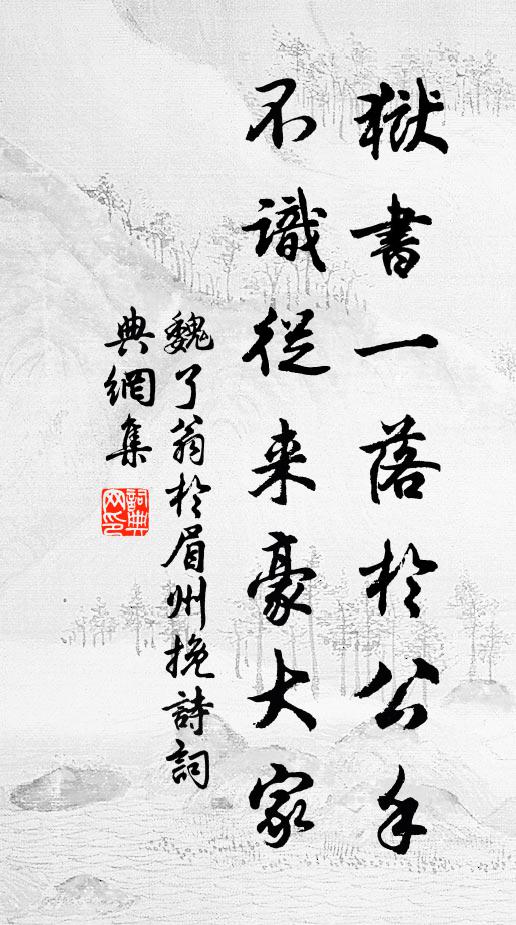 獄書一落於公手
不識從来豪大家
魏了翁於眉州挽詩詞
典網集
詞典
网印